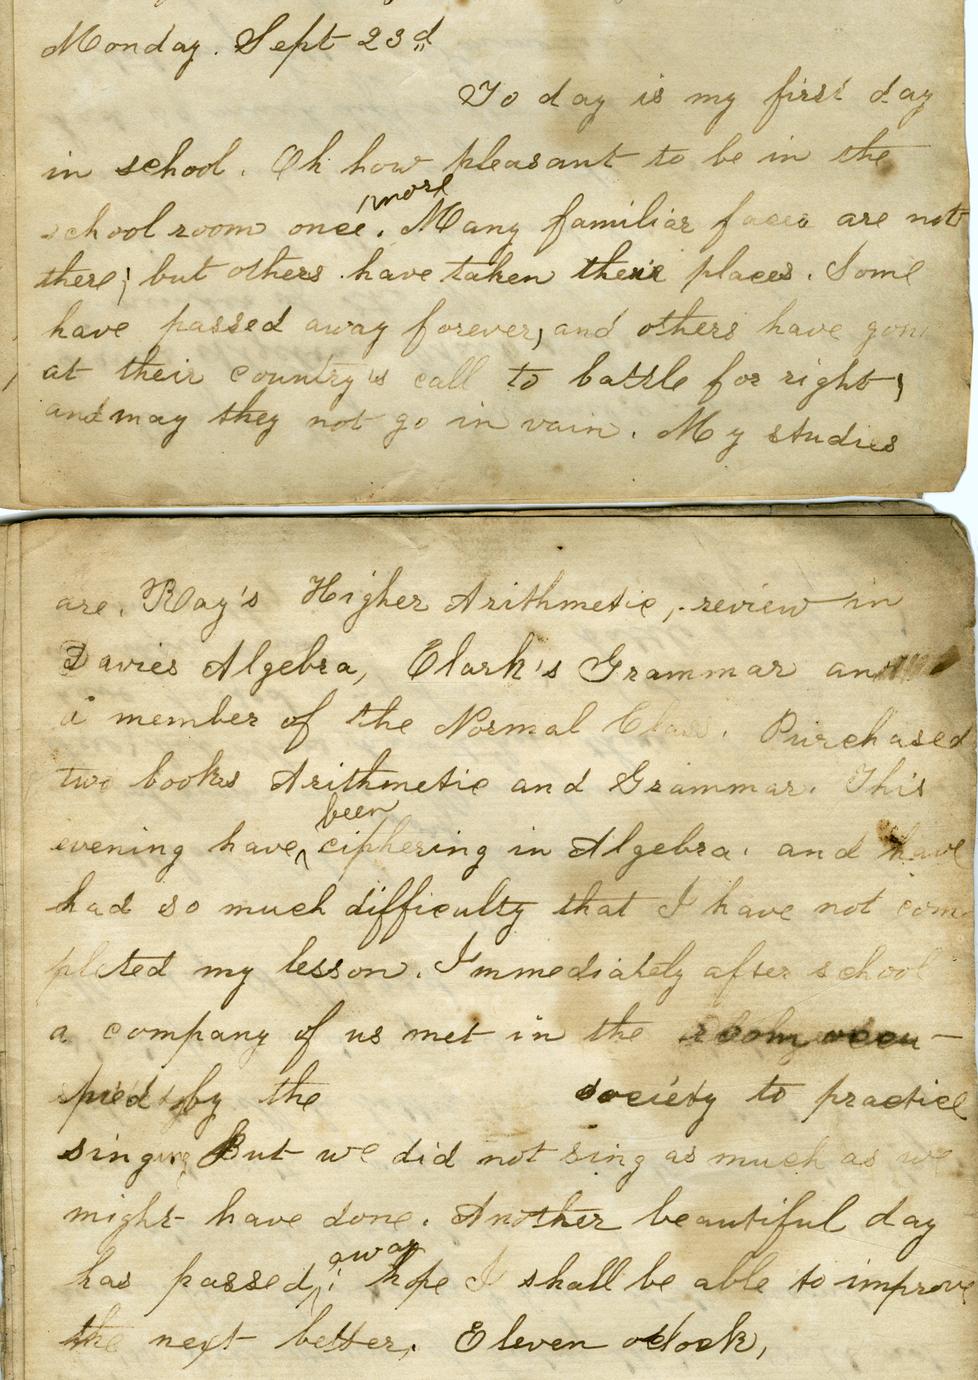 Monday. Sept 23d
To day is my first day
in school. Oh how pleasant to be in the
more
school room once. Many familiar faces are not
there; but others have taken their places. Some
have passed away forever, and others have gone
at their country's call to battle for right;
and may they not go in vain. My studies
are. Ray's Higher Arithmetic, review in
Davies Algebra, Clark's Grammar and
a member of the Normal Class. Purchased
two books Arithmetic and Grammar. This
been
evening have ciphering in Algebra. and have
had so much difficulty that I have not com
pleted my lesson. Immediately after school
a company of us met in the room occu-
pied by the society to practice
singing But we did not sing as much as we
might have done. Another beautiful day
away
has passed; hope I shall be able to improve
the next better. Eleven oclock,